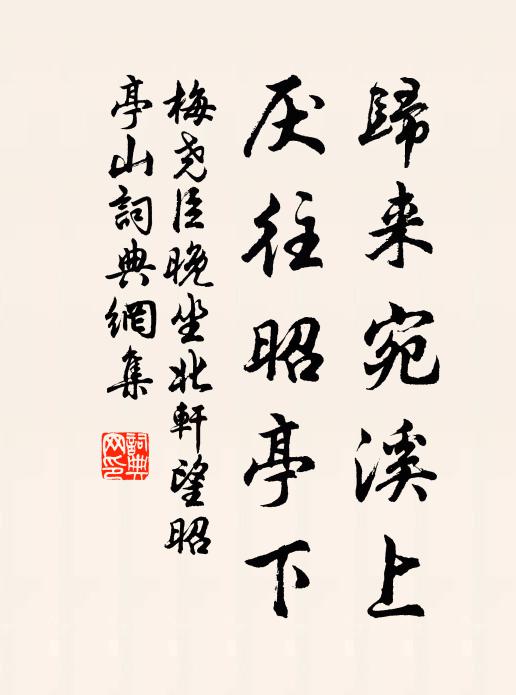 歸来宛溪上
厌往昭亭下
梅尧臣晚坐北軒望昭
亭山詞典網集
詞典网印